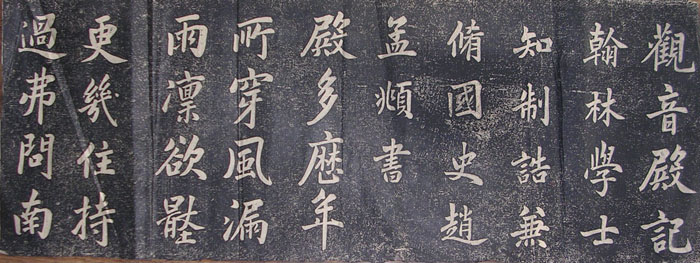 觀音殿記
翰林學士
知制誥兼
脩國史趙
孟頫書
殿多歷年
所穿風漏
雨凜欲壓
更幾住持
過弗問南